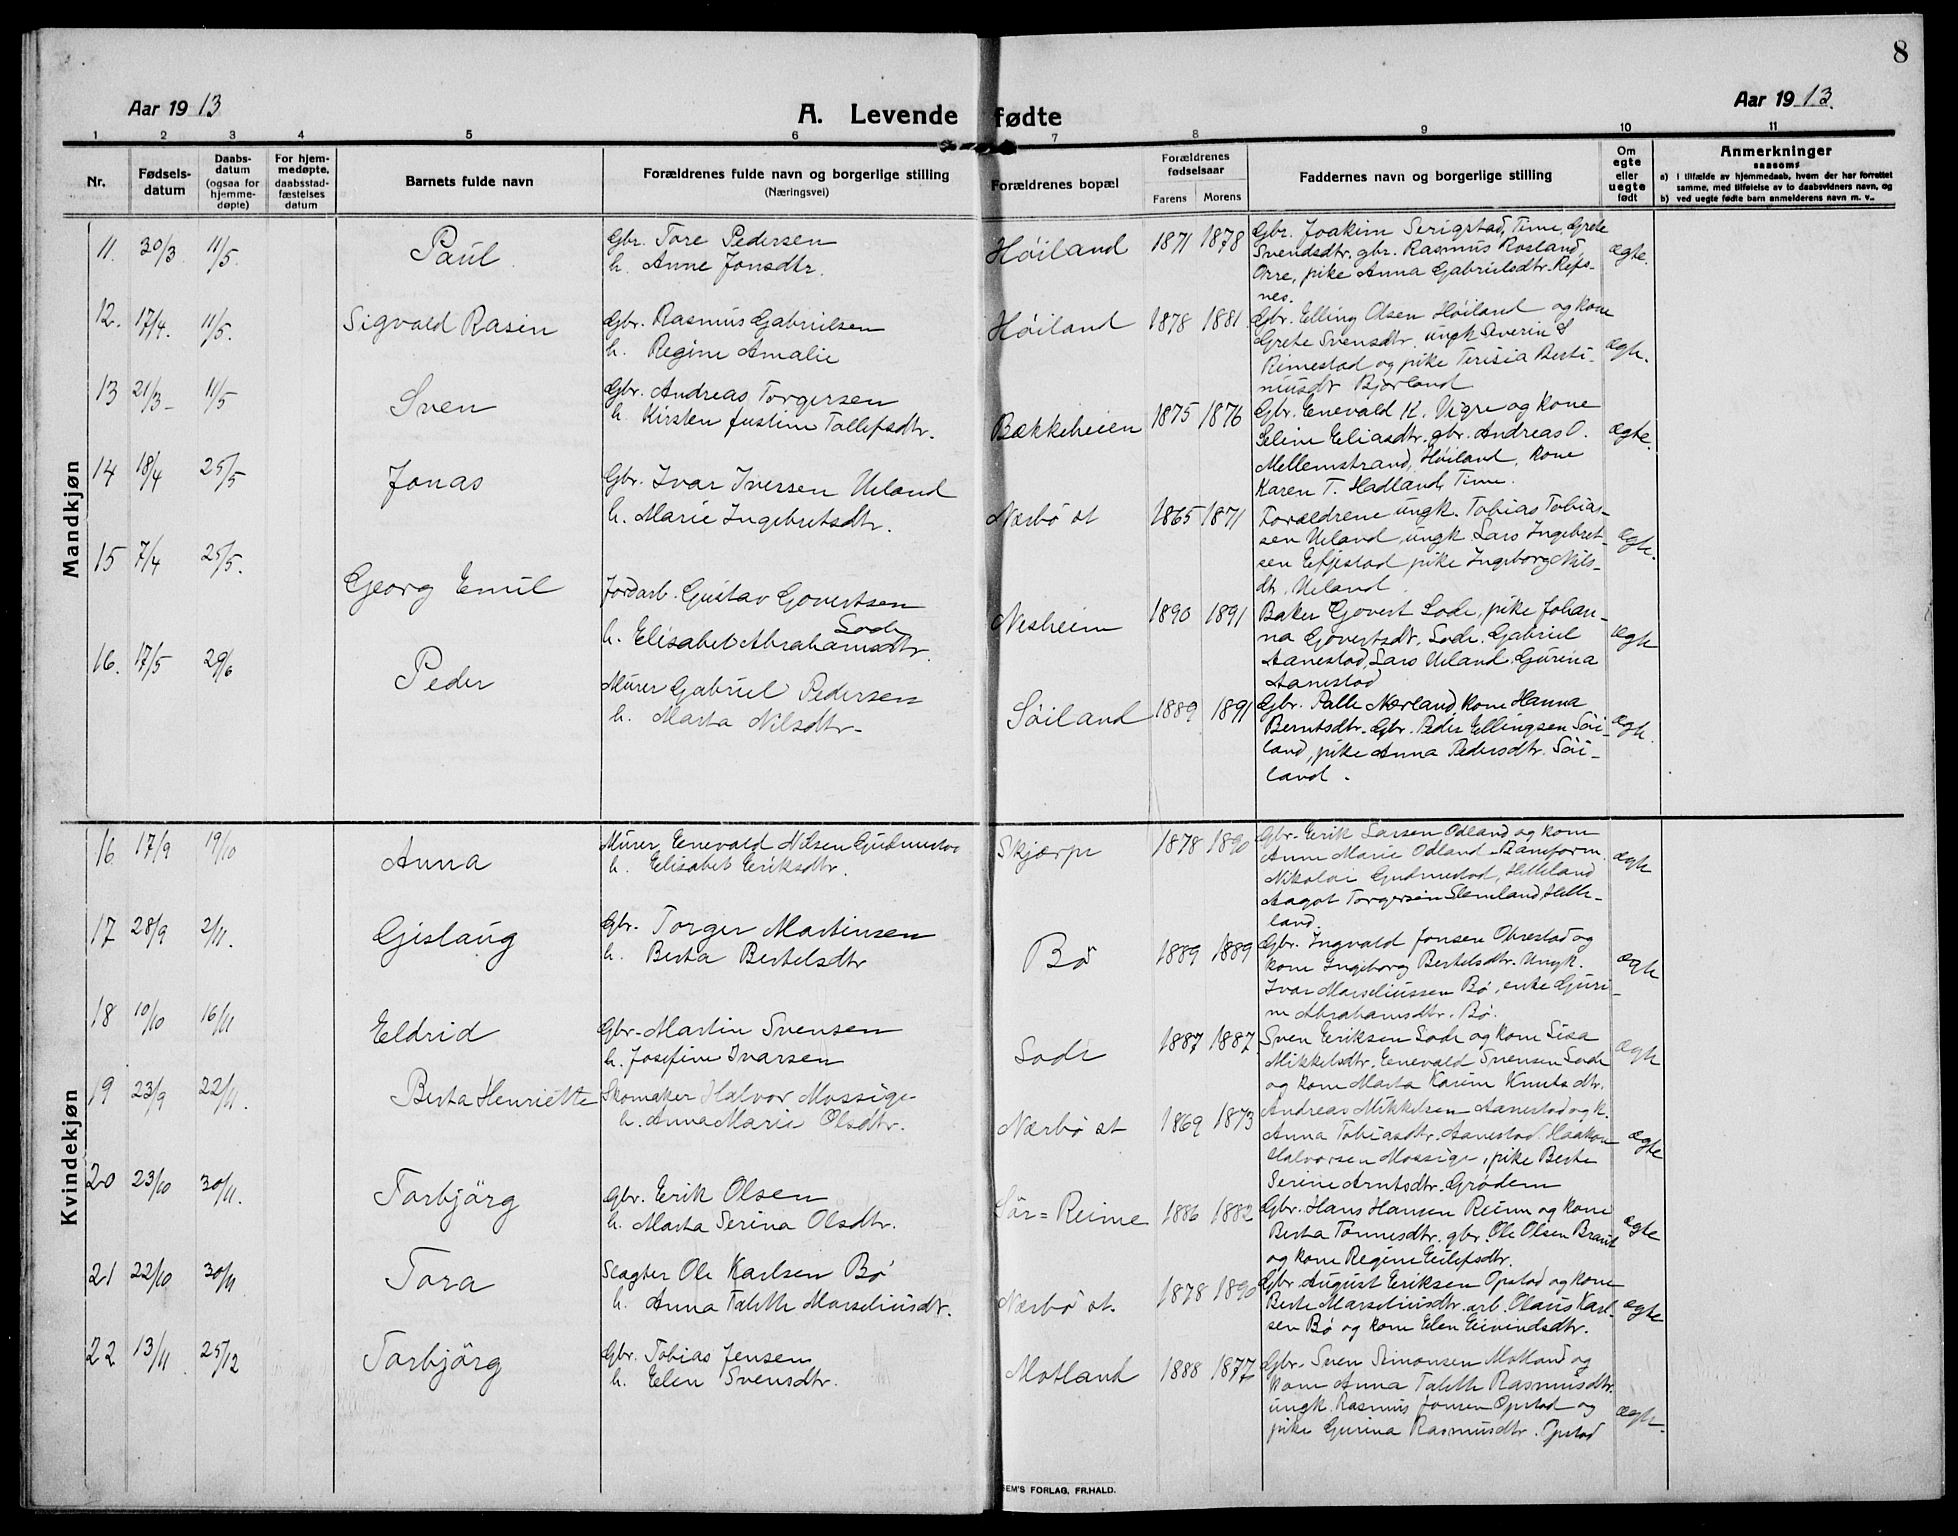 8
Aar 1913
A. Levende fødte
Aar 1913.
1 2 3 4 5 6 7 8 9 10 11
Nr.
Fødsels-
datum
Daabs-
datum
(ogsaa for
hjemme-
døpte)
For hjem-
medøpte,
daabsstad-
fæstelses
datum
Barnets fulde navn
Forældrenes fulde navn og borgerlige stilling
(Næringsvei)
Forældrenes bopæl
Forældrenes
fødselsaar
Farens Morens
Faddernes navn og borgerlige stilling
Om
egte
eller
uegte
født
Anmerkninger
saasoms
a) I tilfælde av hjemmedaab, hvem der har forrettet
samme, med tilføielse av to daabsvidners navn, og
b) ved uegte fødte barn anmelderens navn m. v..
Mandkjøn
11. 30/3 11/5. Paul
Gbr. Tore Pedersen
h. Anne Jonsdtr.
Høiland 1871 1878
Gbr. Joakim Serigstad, Time, Grete
Svendsdtr. gbr. Rasmus Rosland,
Orre, pike Anna Gabrielsdtr. Refs-
nes.
ægte.
12. 17/4. 11/5. Sigvald Rasin
Gbr. Rasmus Gabrielsen
h. Regine Amalie
Høiland 1878 1881.
Gbr. Elling Olsen Høiland og kone
Grete Svensdtr. ungk Severin S
Rimestad og pike Terisia Berti-
niusdtr Bjorland
ægte.
13 21/3- 11/5 Sven
Gbr. Andreas Torgersen
h. Kirsten Justine Tollefsdtr.
Bækkeheien 1875 1876
Gbr. Enevald K. Vigre og kone
Seline Eliasdtr. gbr. Andreas O.
Mellemstrand, Høiland, kone
Karen T. Hadland, Time.
ægte.
14 18/4 25/5 Jonas
Gbr. Ivar Iversen Ueland
h. Marie Ingebretsdtr.
Nærbø st 1865 1871
Forældrene ungk. Tobias Tobias-
sen Ueland, ungk. Lars Ingebret-
sen Efjestad pike Ingeborg Nils-
dtr. Ueland.
ægte.
15 7/4 25/5. Georg Emil
Jordarb. Gustav Govertsen
Sode
h. Elisabet Abrahamsdtr.
Nesheim 1890 1891
Baker Govert Sode, pike Johan-
na Govertsdt. Sode. Gabriel
Aanestad, Lars Ueland Gurina
Aanestad
ægte
16. 17/5 29/6 Peder
Murer Gabriel Pedersen
h. Marta Nilsdtr-
Søiland 1889 1891
Gbr. Palle Nærland, kone Hanna
Berntsdtr. Gbr. Peder Ellingsen Søi-
land, pike Anna Pedersdtr. Søi-
land.
ægte.
Kvindekjøn
16 17/9 19/10 Anna
Murer Enevald Nilsen Gudmestad
h. Elisabet Eriksdtr.
Skjærpe 1878 1890
Gbr. Erik Larsen Odland og kone
Anne Marie Odland. Baneform.
Nikolai Gudmestad, Helleland
Aagot Torgersen Slemland, Helle-
land.
ægte
17 28/9 2/11. Gislaug
Gbr. Torger Martinsen
h. Berta Bertelsdtr
Bø 1889 1889
Gbr. Ingvald Jonsen Obrestad og
kone Ingeborg Bertelsdtr. Ungk.
Ivar Marseliussen Bø, enke Guri-
ne Abrahamsdtr. Bø.
ægte
18 10/10 16/11 Eldrid
Gbr- Martin Svensen
h. Josefine Ivarsen
Sode 1887 1887
Sven Eriksen Sode og kone Lisa
Mikkelsdtr. Enevald Svensen Sode
og kone Marta Karine Knutsdtr.
ægte
19 23/9 22/11. Berta Henriette
Skomaker Halvor Mossige
h. Anna Marie Olsdtr.
Nærbø st 1869 1873
Andreas Mikkelsen Aanestad og k.
Anna Tobiasdtr. Aanestad. Haakon
Halvorsen Mossige, pike Berte
Serine Arntsdtr. Grødem
ægte
20 23/10 30/11. Torbjörg
Gbr. Erik Olsen
h. Marta Serina Olsdtr.
Sör=Reime 1886 1882
Gbr. Hans Hansen Reime og kone
Berta Tönnesdtr. gbr. Ole Olsen Braut
og kone Regine Eilefsdtr.
ægte
21 22/10 30/11 Tora
Slagter Ole Karlsen Bø
h. Anna Talette Marseliusdtr.
Nærbø st. 1878 1890
Gbr August Eriksen Opstad og kone
Berte Marseliusdtr. arb. Olaus Karl-
sen Bø og kone Elen Eivindsdtr.
ægte
22 13/11 25/12 Torbjörg
Gbr. Tobias Jensen
h. Elen Svensdtr.
Motland 1888 1877
Gbr. Sven Simonsen Motland og
kone Anna Talette Rasmusdtr.
ungk. Rasmus Jonsen Opstad og
pike Gurina Rasmusdtr. Opstad
ægte.
SEM'S FORLAG, FR.HALD.